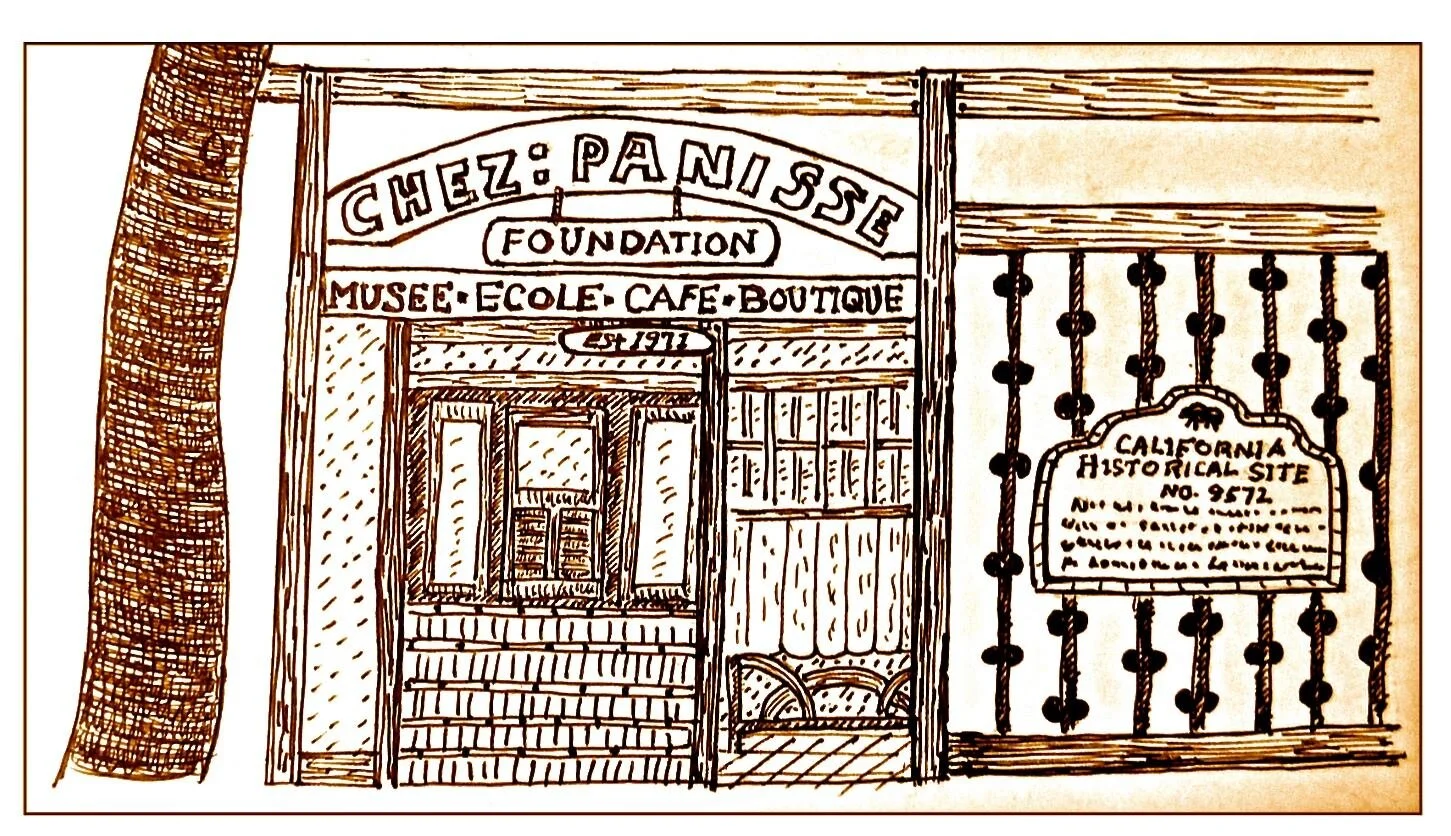 CHEZ: PANISSE
FOUNDATION
MUSEE • ECOLE • CAFE • BOUTIQUE
Est 1971
CALIFORNIA
HISTORICAL SITE
NO. 9572